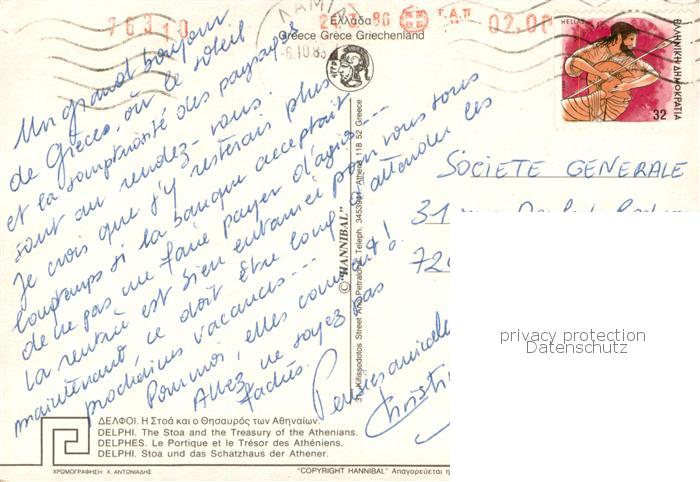 76310
24.9.86
Γ.Α.Π
02.00
Ελλάδα
Greece Grèce Griechenland
6.10.86
HELLAS
ΕΛΛΗΝΙΚΗ ΔΗΜΟΚΡΑΤΙΑ
32
Un grand bonjour
de Grèce, où le soleil
et la somptuosité des paysages
sont au rendez-vous.
Je crois que j'y resterais plus
longtemps si la banque acceptait
de ne pas me faire payer d'agios ---
La rentrée est bien entamée pour vous tous
maintenant, ce doit être long d'attendre les
prochaines vacances ---
Pour moi, elles continuent!
Allez ne soyez pas
fachés.
Pensées amicales
Christi
SOCIETE GENERALE
31 rue
720
© "HANNIBAL"
31, Kifissodotos Street Ano Petralona, Teleph. 3453941 - Athens 118 52 Greece
privacy protection
Datenschutz
ΔΕΛΦΟΙ. Η Στοά και ο Θησαυρός των Αθηναίων.
DELPHI. The Stoa and the Treasury of the Athenians.
DELPHES. Le Portique et le Trésor des Athéniens.
DELPHI. Stoa und das Schatzhaus der Athener.
ΧΡΩΜΟΓΡΑΦΗΣΗ: Χ. ΑΝΤΩΝΙΑΔΗΣ
"COPYRIGHT HANNIBAL" Απαγορεύεται η